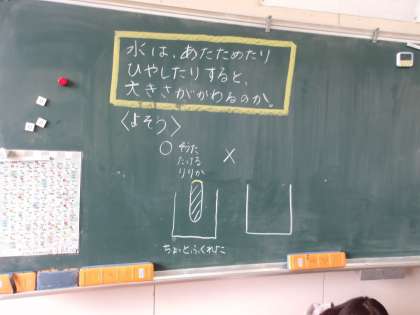 水は、あたためたり
ひやしたりすると、
大きさがかわるのか。
〈よそう〉
○ そうた ×
たける
りりか